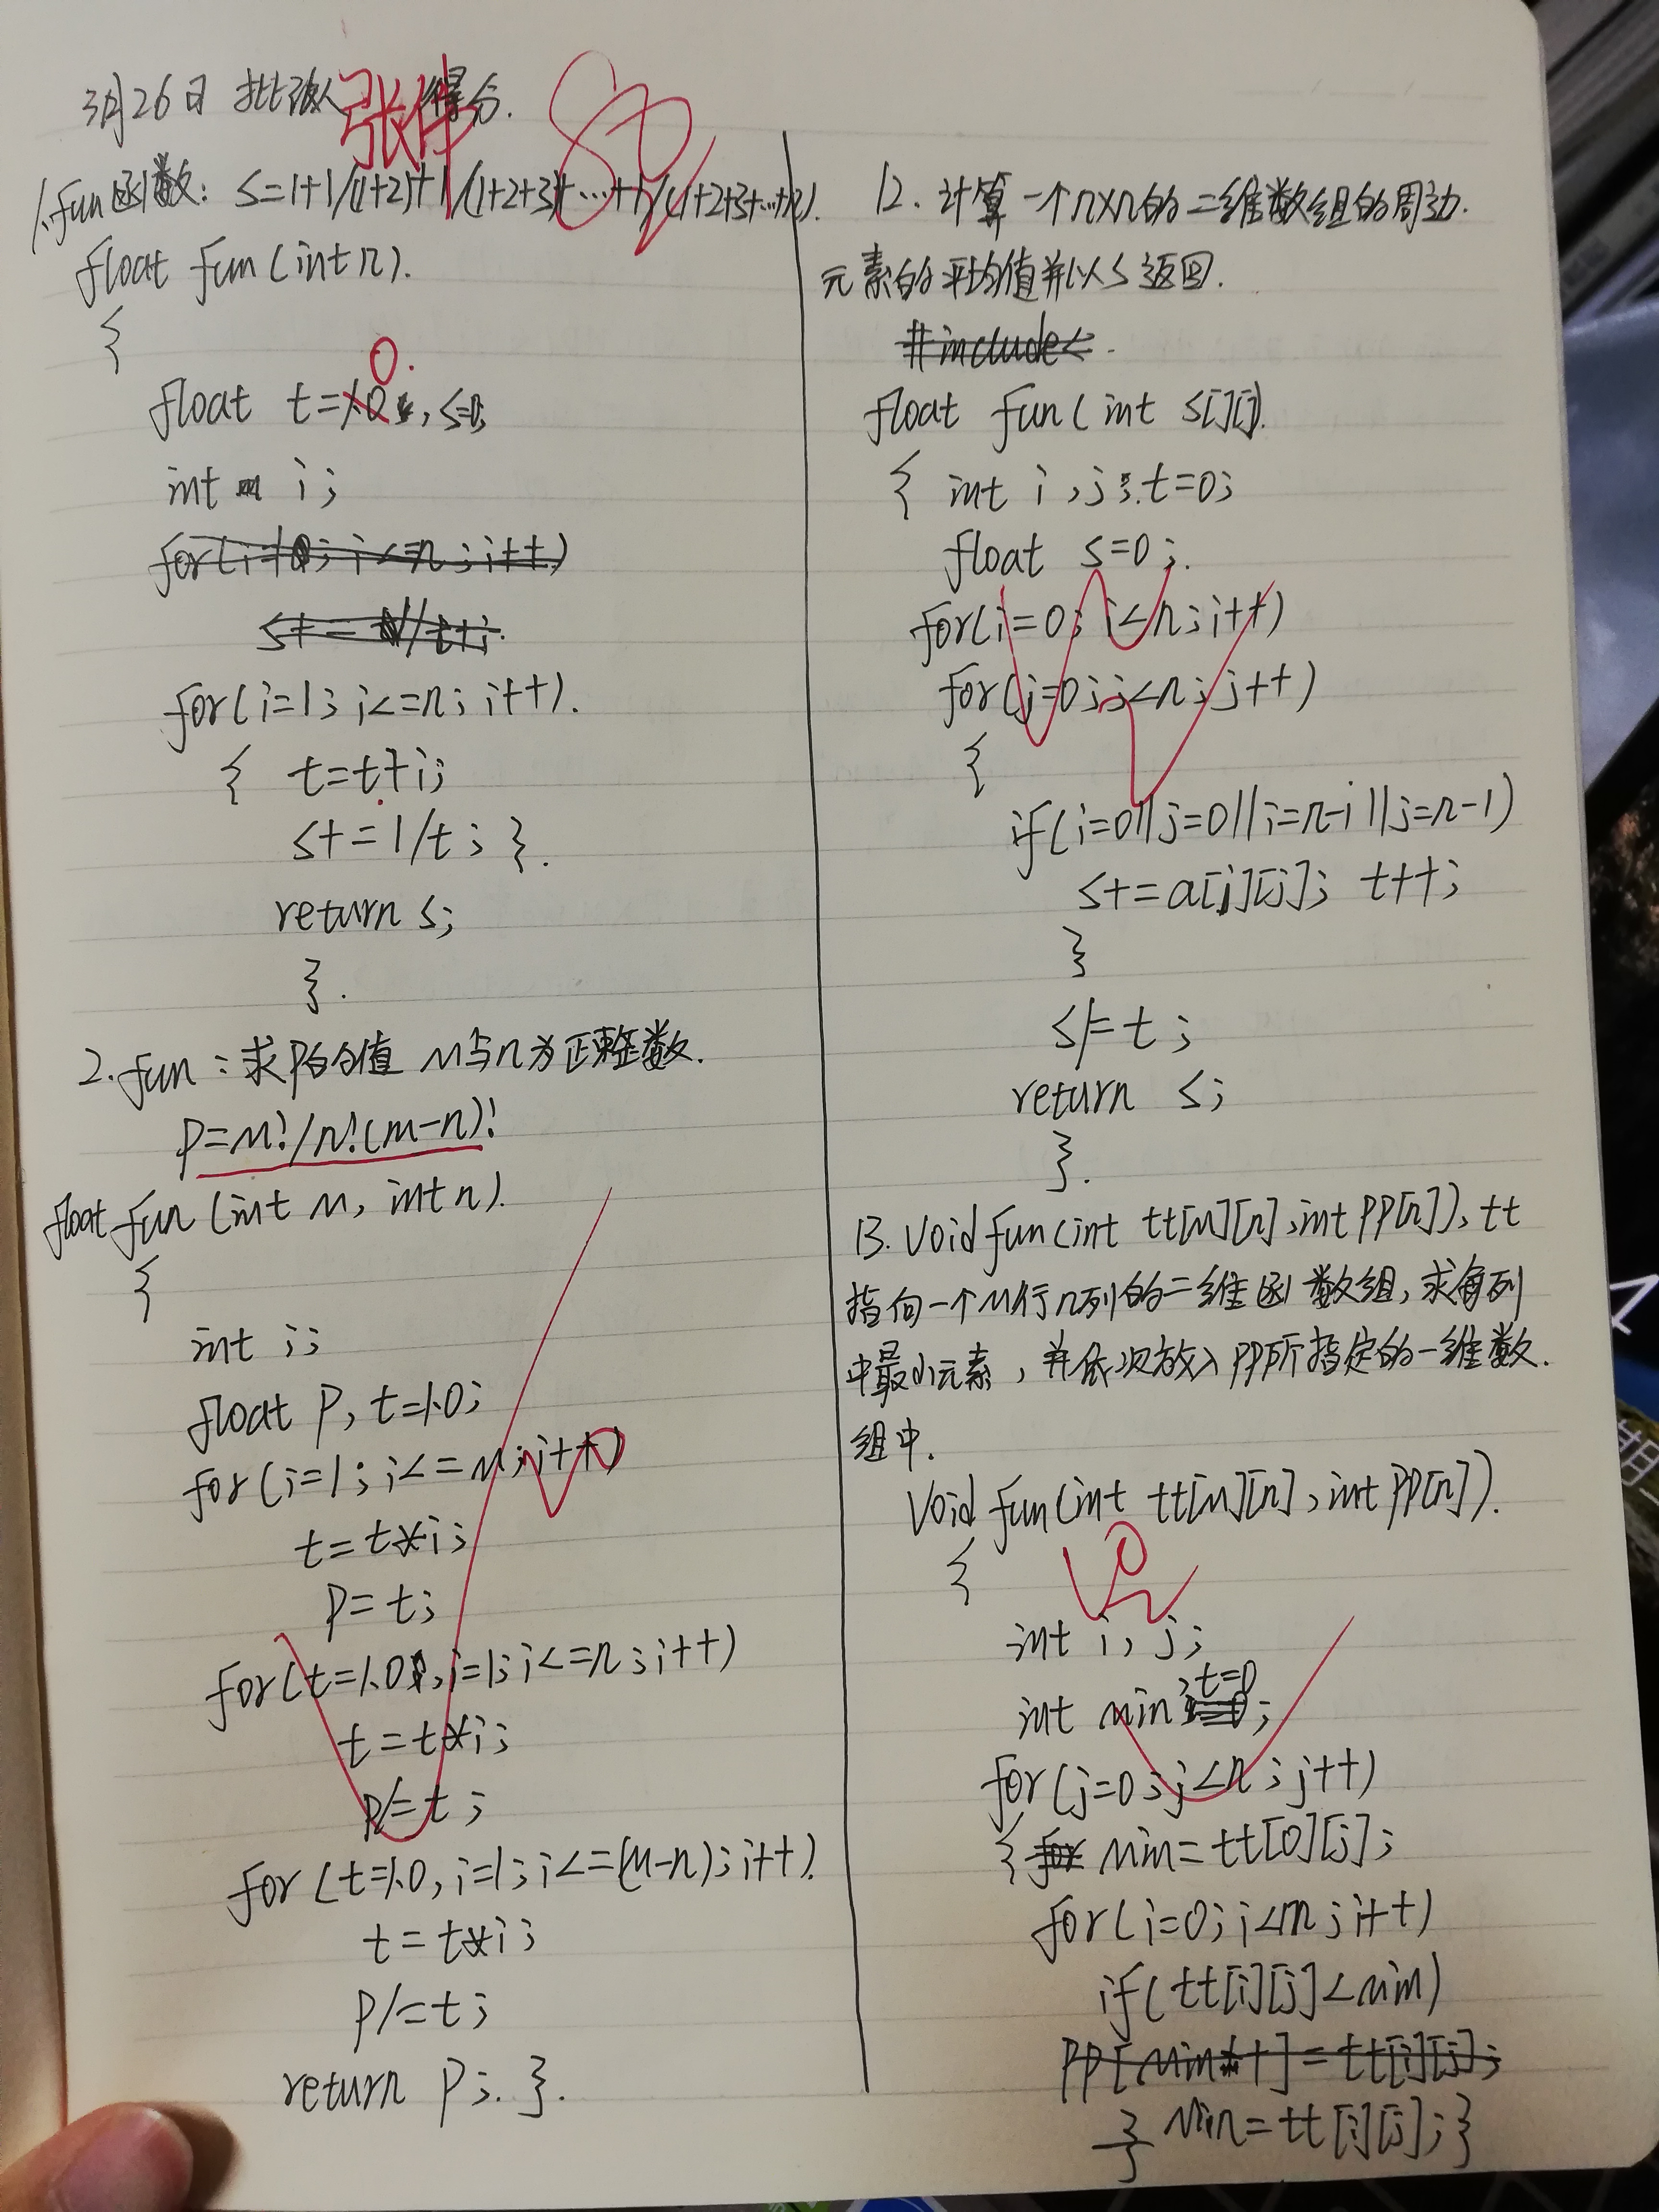 3月26日 批改人 张伟 得分. 80
1.fun函数: S=1+1/(1+2)+1/(1+2+3)+…+1/(1+2+3+…+n).
float fun(int n).
{
0.
float t=1.0, s=0;
int i;
for(i=0; i<=n; i++)
for(i=1; i<=n; i++).
{ t=t+i;
s+=1/t; }.
return s;
}.
2.fun:求P的值 m与n为正整数.
P=m!/n!(m-n)!
float fun(int m, int n).
{
int i;
float P, t=1.0;
for(i=1; i<=m; i++)
t=t*i;
P=t;
for(t=1.0,i=1; i<=n; i++)
t=t*i;
P/=t;
for(t=1.0, i=1; i<=(m-n); i++).
t=t*i;
P/=t;
return P;. }.
12. 计算一个n×n的二维数组的周边.
元素的平均值并以s返回.
#include<.
float fun(int s[][]).
{ int i,j; t=0;
float s=0;.
for(i=0; i<n; i++)
for(j=0; j<n; j++)
{
if(i=0||j=0||i=n-1||j=n-1)
s+=a[i][j]; t++;
}
s/=t;
return s;
}.
13. Void fun(int tt[m][n],int PP[n]), tt
指向一个m行n列的二维函数组,求每列
中最小元素,并依次放入PP所指定的一维数.
组中.
Void fun(int tt[m][n],int PP[n]).
{
int i, j;
int min,t=0;
for(j=0;j<n;j++)
{ for min=tt[0][j];
for(i=0;i<m;i++)
if(tt[i][j]<min)
PP[min++]=tt[i][j];
} min=tt[i][j];}
}